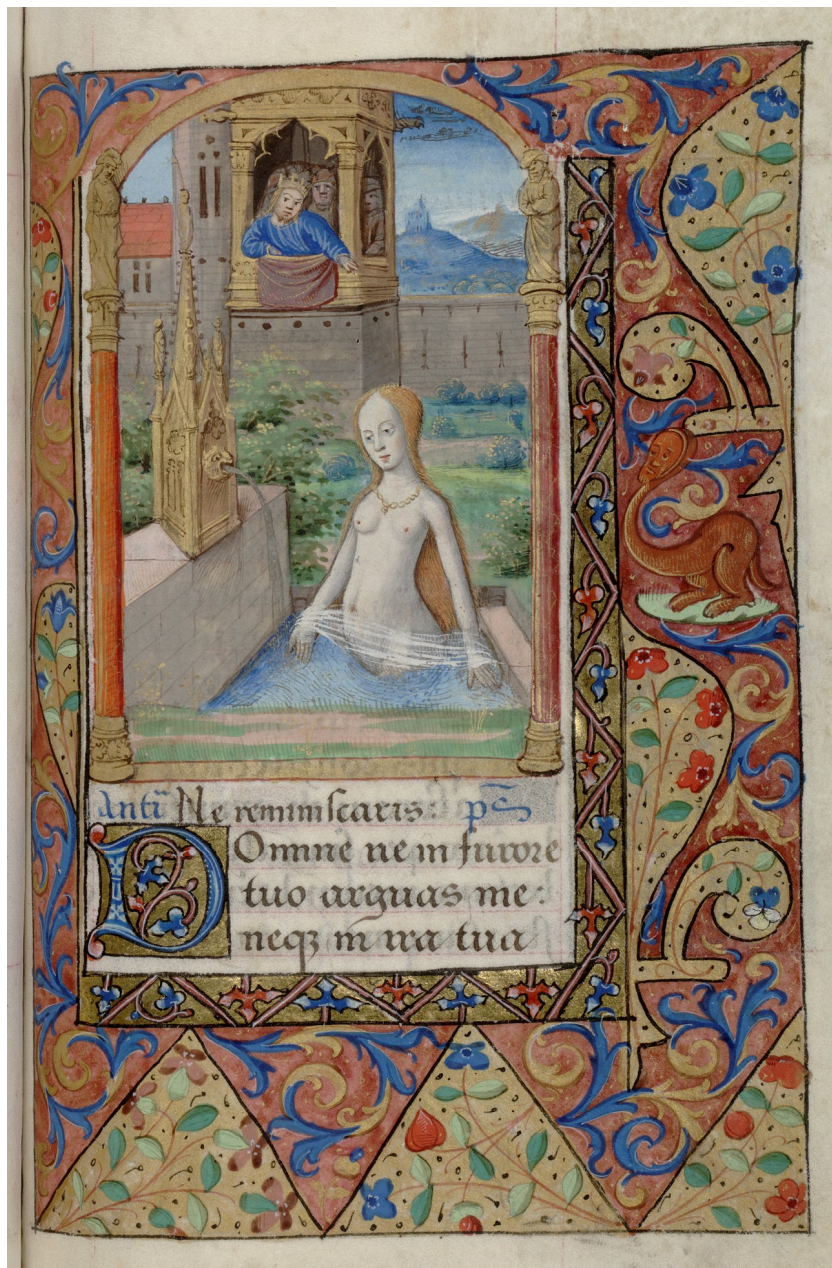 Antī Ne reminiscaris: ps̄
Domine ne in furore
tuo arguas me:
neqꝫ in ira tua